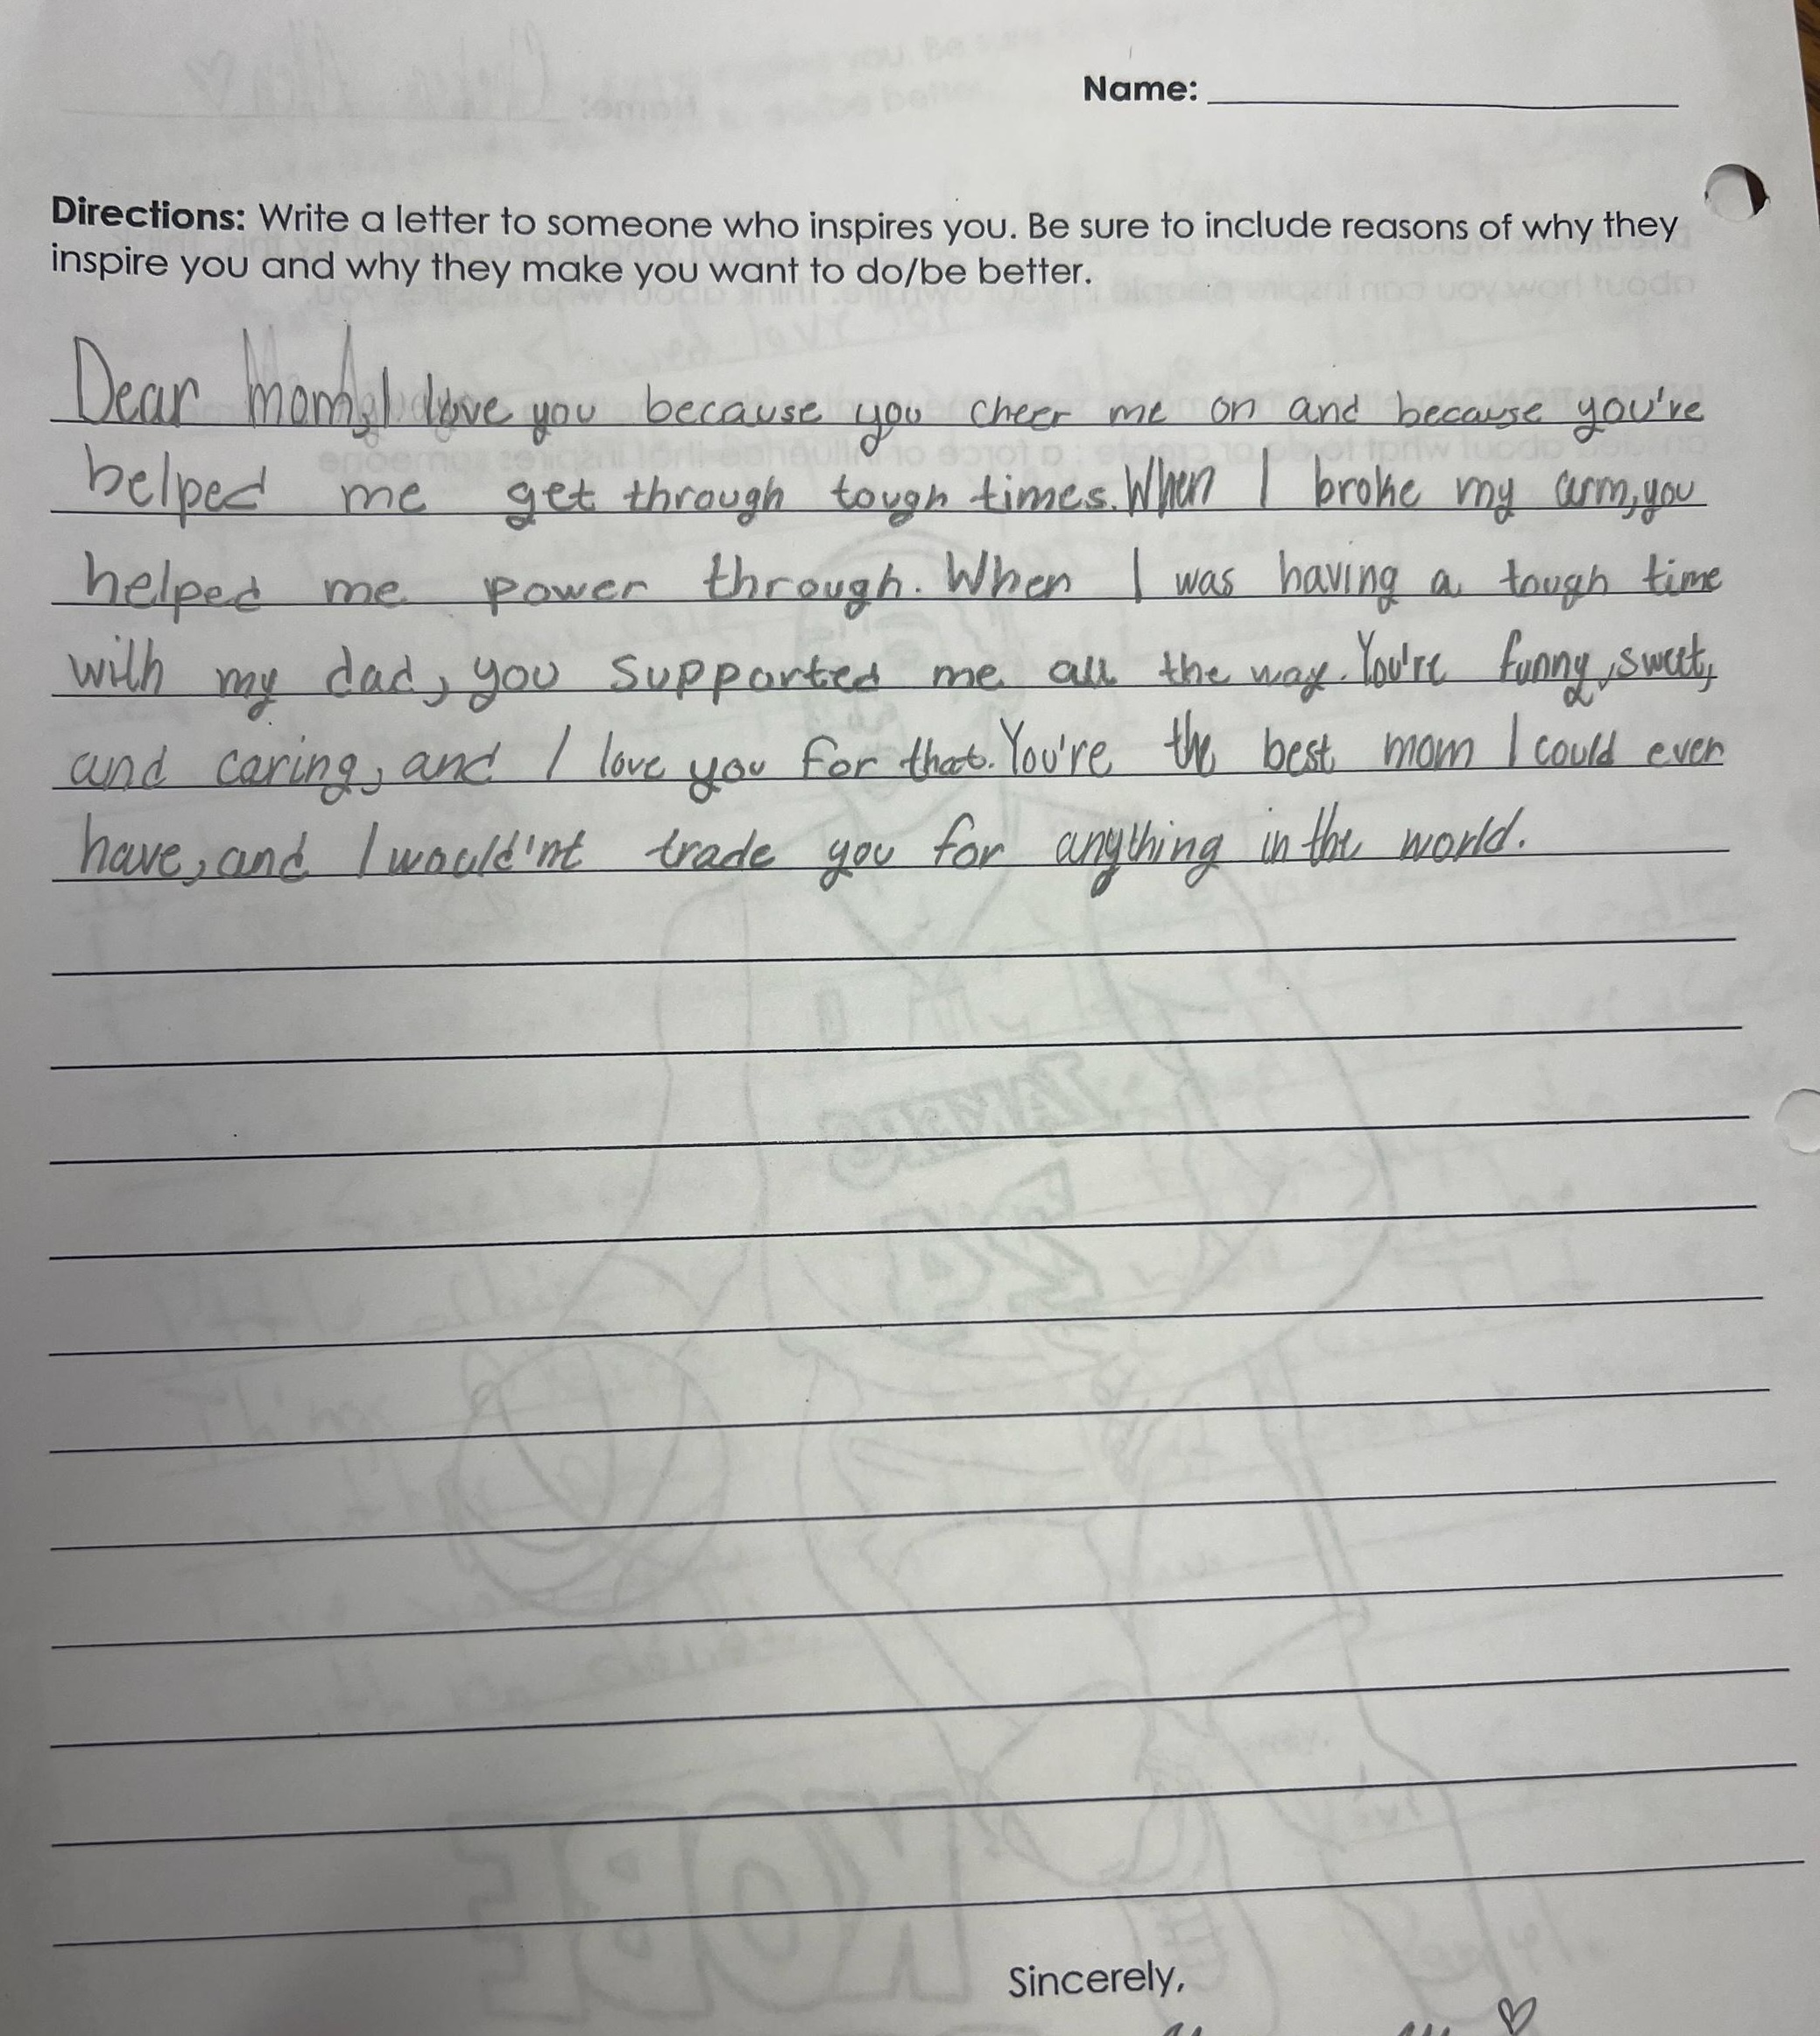 Name:
Directions: Write a letter to someone who inspires you. Be sure to include reasons of why they
inspire you and why they make you want to do/be better.
Dear Mom, I love you because you cheer me on and because you're
helped me get through tough times. When I broke my arm, you
helped me power through. When I was having a tough time
with my dad, you supported me all the way. You're funny, sweet,
and caring, and I love you for that. You're the best mom I could ever
have, and I would'nt trade you for anything in the world.
Sincerely,